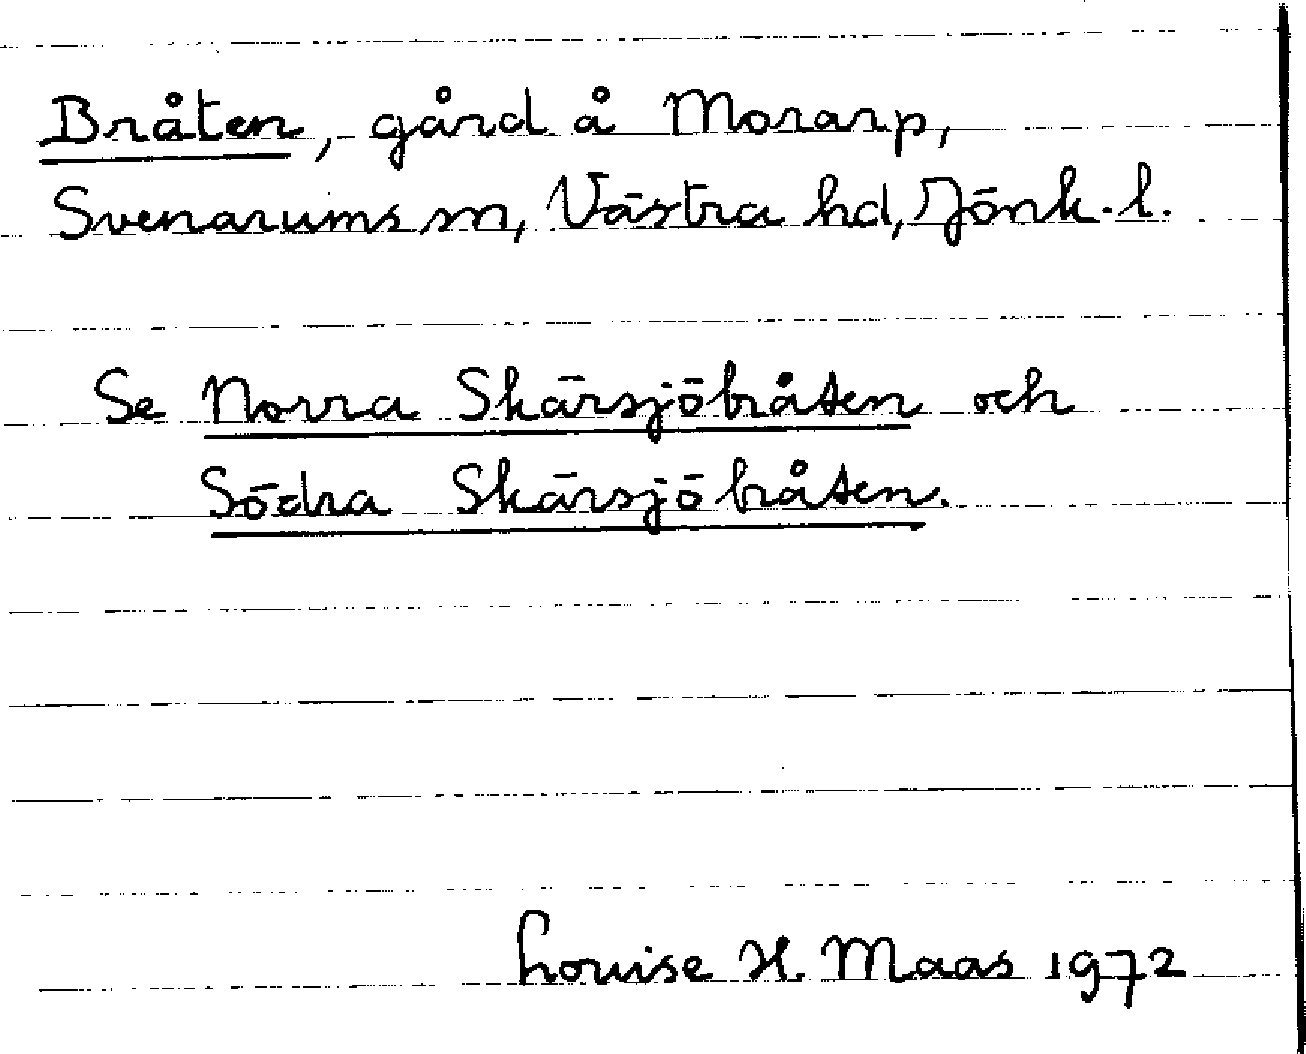 Bråten, gård å Morarp,
Svenarums sn, Västra hd, Jönk. l.
Se Norra Skärsjöbråten och
Södra Skärsjöbråten.
Louise H. Maas 1972